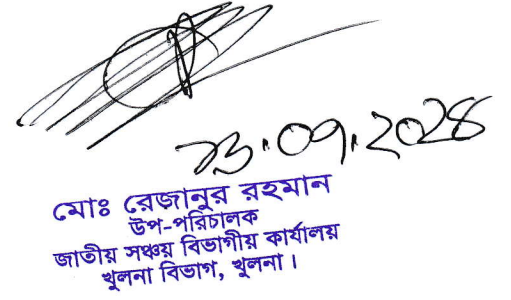 ২৩.০৭.২০২৪
মোঃ রেজানুর রহমান
উপ-পরিচালক
জাতীয় সঞ্চয় বিভাগীয় কার্যালয়
খুলনা বিভাগ, খুলনা।